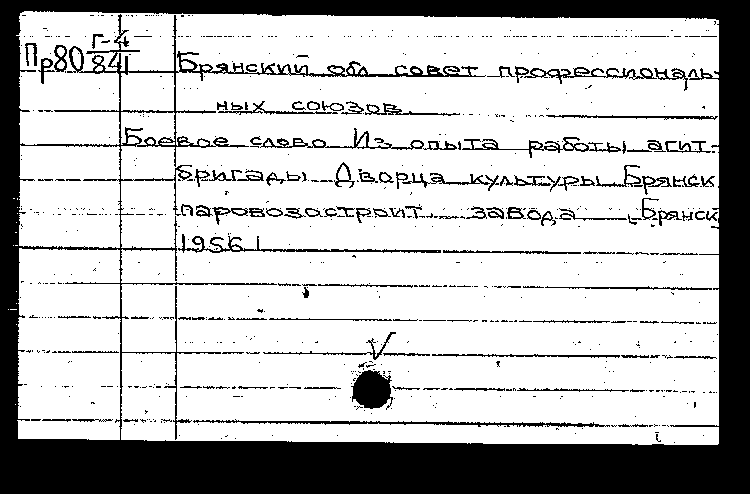 Пр80 Г-4
841
Брянский обл. совет профессиональ-
ных союзов.
Боевое слово Из опыта работы агит-
бригады Дворца культуры Брянск.
паровозостроит. завода [Брянск
1956]